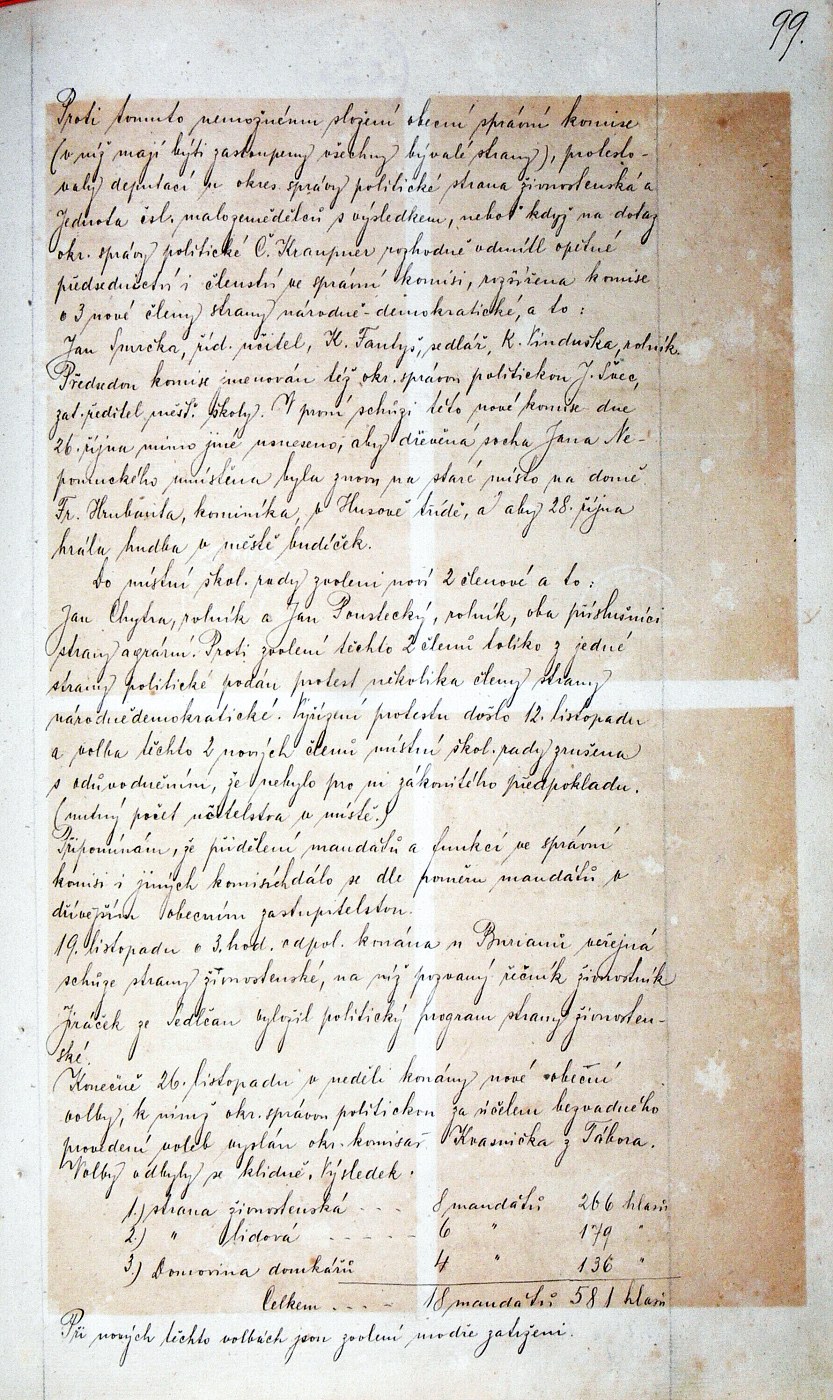 99.
Proti tomuto nemožnému složení obecní správní komise
(v níž mají býti zastoupeny všechny bývalé strany), protesto-
valy deputací u okres. správy politické strana živnostenská a
Jednota čsl. malozemědělců s výsledkem, neboť když na dotaz
okr. správy politické Č. Kraupner rozhodně odmítl opětné
předsednictví i členství ve správní komisi, rozšířena komise
o 3 nové členy strany národně-demokratické, a to:
Jan Smrčka, říd. učitel, K. Fantyš, sedlář, K. Vinduška, rolník.
Předsedou komise jmenován též okr. správou politickou J. Švec,
zat. ředitel měšť. školy. V první schůzi této nové komise dne
26. října mimo jiné usneseno, aby dřevěná socha Jana Ne-
pomuckého umístěna byla znovu na staré místo na domě
Fr. Hrubanta, kominíka, v Husově třídě, a aby 28. října
hrála hudba v městě budíček.
Do místní škol. rady zvoleni noví 2 členové a to:
Jan Chytra, rolník a Jan Poustecký, rolník, oba příslušníci
strany agrární. Proti zvolení těchto 2 členů toliko z jedné
strany politické podán protest několika členy strany
národnědemokratické. Vyřízení protestu došlo 12. listopadu
a volba těchto 2 nových členů místní škol. rady zrušena
s odůvodněním, že nebylo pro ni zákonitého předpokladu.
(nutný počet učitelstva v místě.)
Připomínám, že přidělení mandátů a funkcí ve správní
komisi i jiných komisích dálo se dle poměru mandátů v
dřívějším obecním zastupitelstvu.
19. listopadu o 3. hod. odpol. konána u Burianů veřejná
schůze strany živnostenské, na níž pozvaný řečník živnostník
Jiráček ze Sedlčan vyložil politický program strany živnosten-
ské.
Konečně 26. listopadu v neděli konány nové obecní
volby, k nimž okr. správou politickou za účelem bezvadného
provedení voleb vyslán okr. komisař Kvasnička z Tábora.
Volby odbyly se klidně. Výsledek:
1.) strana živnostenská - - - 8 mandátů 266 hlasů
2.) " lidová - - - - - 6 " 179 "
3.) Domovina domkářů 4 " 136 "
Celkem - - - - 18 mandátů 581 hlasů
Při nových těchto volbách jsou zvolení modře zatrženi.